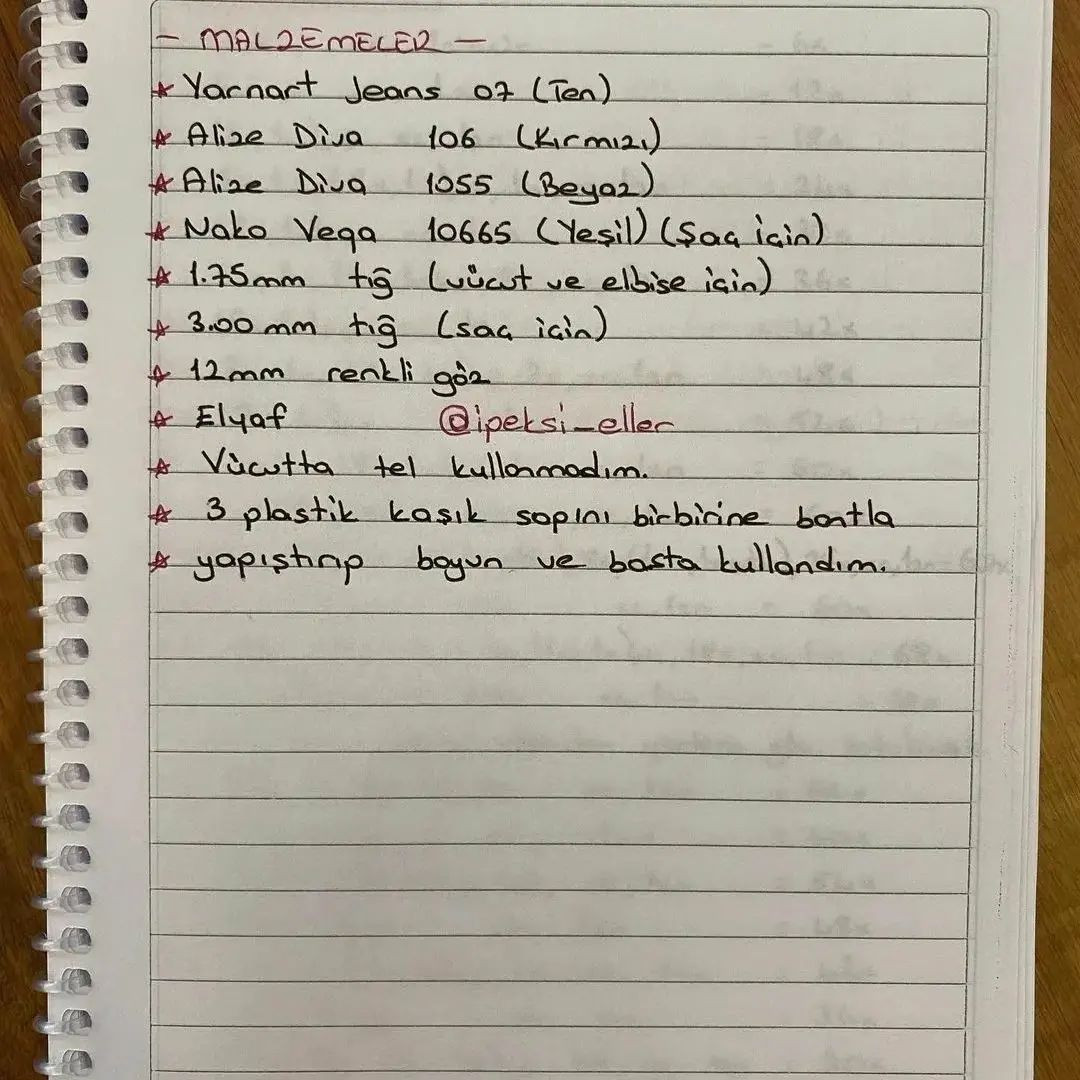 - MALZEMELER -
☆ Yarnart Jeans 07 (Ten)
☆ Alize Diva 106 (Kırmızı)
☆ Alize Diva 1055 (Beyaz)
☆ Nako Vega 10665 (Yeşil) (Saç için)
☆ 1.75mm tığ (vücut ve elbise için)
☆ 3.00 mm tığ (saç için)
☆ 12mm renkli göz
☆ Elyaf @ipeksi_eller
☆ Vücutta tel kullanmadım.
☆ 3 plastik kaşık sapını birbirine bantla
☆ yapıştırıp boyun ve başta kullandım.